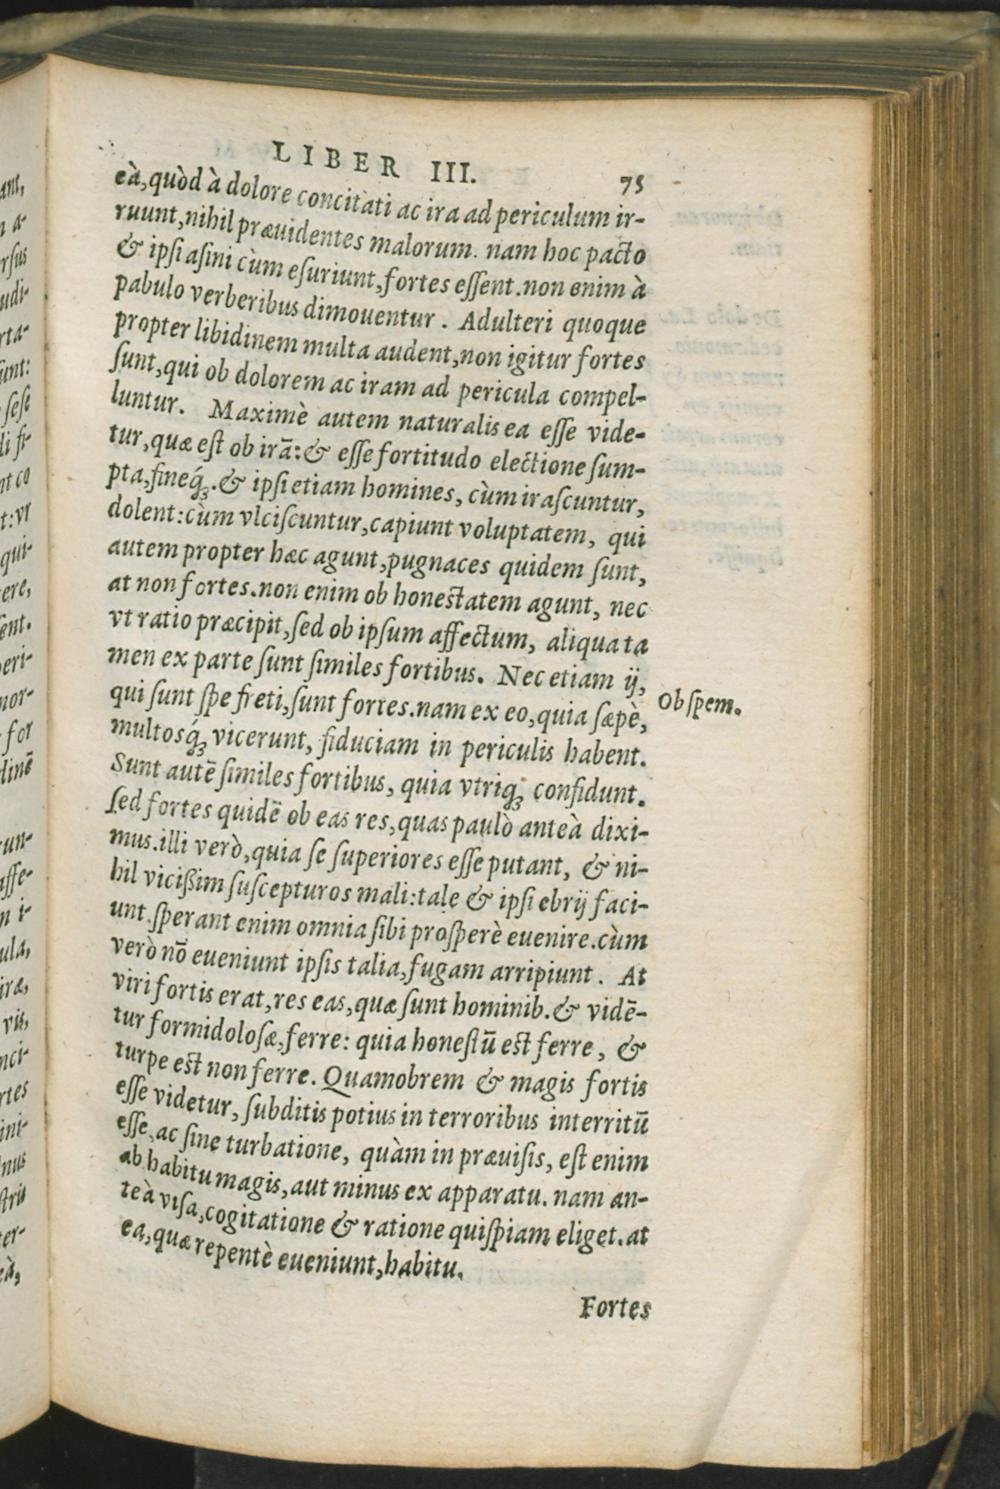 LIBER III. 75
eà,quòd à dolore concitati ac ira ad periculum ir-
ruunt,nihil præuidentes malorum. nam hoc pacto
& ipsi asini cùm esuriunt,fortes essent.non enim à
pabulo verberibus dimouentur. Adulteri quoque
propter libidinem multa audent,non igitur fortes
sunt,qui ob dolorem ac iram ad pericula compel-
luntur. Maximè autem naturalis ea esse vide-
tur,quæ est ob irā:& esse fortitudo electione sum-
pta,fineq́ꝫ.& ipsi etiam homines, cùm irascuntur,
dolent:cùm vlciscuntur,capiunt voluptatem, qui
autem propter hæc agunt,pugnaces quidem sunt,
at non fortes.non enim ob honestatem agunt, nec
vt ratio præcipit,sed ob ipsum affectum, aliqua ta
men ex parte sunt similes fortibus. Nec etiam ij,
Ob spem.
qui sunt spe freti,sunt fortes.nam ex eo,quia sæpè,
multosq́ꝫ vicerunt, fiduciam in periculis habent.
Sunt autē similes fortibus, quia vtriqꝫ confidunt.
sed fortes quidē ob eas res,quas paulò anteà dixi-
mus.illi verò,quia se superiores esse putant, & ni-
hil vicißim suscepturos mali:tale & ipsi ebrij faci-
unt.sperant enim omnia sibi prosperè euenire.cùm
verò nō eueniunt ipsis talia,fugam arripiunt. At
viri fortis erat,res eas,quæ sunt hominib.& vidē-
tur formidolosæ,ferre: quia honestū est ferre, &
turpe est non ferre. Quamobrem & magis fortis
esse videtur, subditis potius in terroribus interritū
esse, ac sine turbatione, quàm in præuisis, est enim
ab habitu magis, aut minus ex apparatu. nam an-
teà visa,cogitatione & ratione quispiam eliget.at
ea,quæ repentè eueniunt,habitu.
Fortes